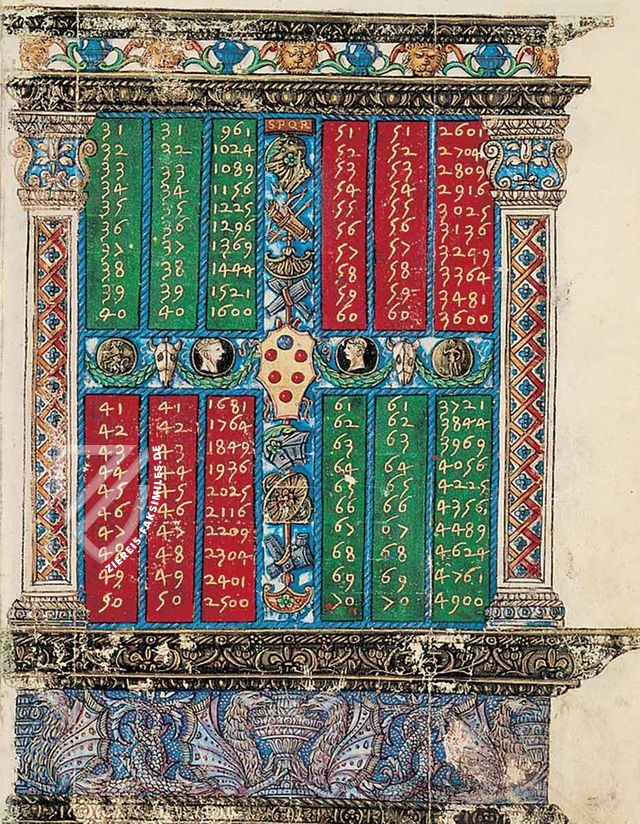 SPQR
31 31 961
32 32 1024
33 33 1089
34 34 1156
35 35 1225
36 36 1296
37 37 1369
38 38 1444
39 39 1521
40 40 1600
51 51 2601
52 52 2704
53 53 2809
54 54 2916
55 55 3025
56 56 3136
57 57 3249
58 58 3364
59 59 3481
60 60 3600
41 41 1681
42 42 1764
43 43 1849
44 44 1936
45 45 2025
46 46 2116
47 47 2209
48 48 2304
49 49 2401
50 50 2500
61 61 3721
62 62 3844
63 63 3969
64 64 4056
65 65 4225
66 66 4356
67 67 4489
68 68 4624
69 69 4761
70 70 4900
ZIEREIS-FAKSIMILES.DE